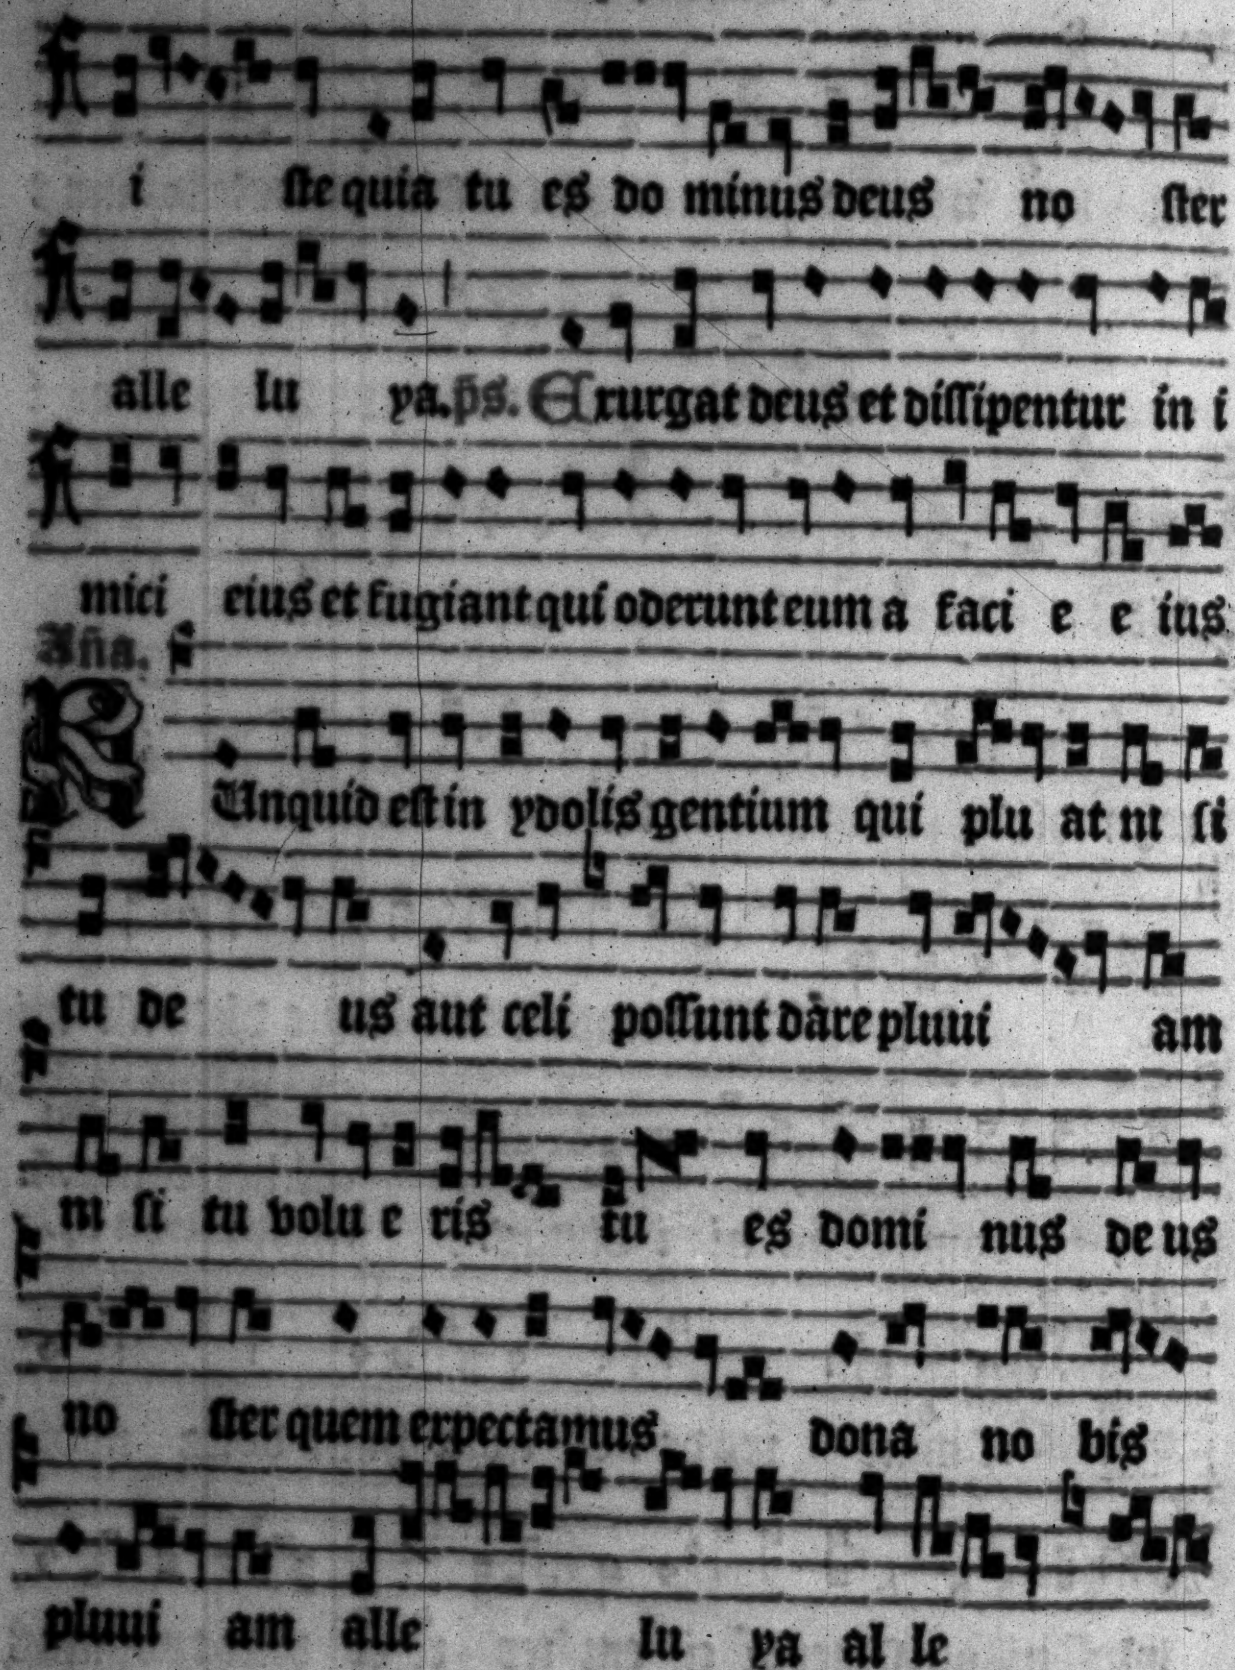 i ste quia tu es do minus deus no ster
alle lu ya. p̄s. Exurgat deus et dissipentur in i
mici eius et fugiant qui oderunt eum a faci e e ius
Aña.
NUnquid est in ydolis gentium qui plu at ni si
tu de us aut celi possunt dare pluui am
ni si tu volu e ris tu es domi nus de us
no ster quem expectamus dona no bis
pluui am alle lu ya al le